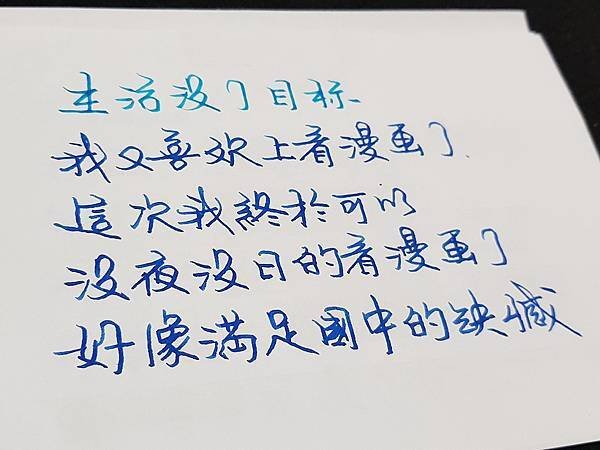 生活没了目标、
我又喜欢上看漫画了.
這次我終於可以
没夜没日的看漫画了
好像满足國中的缺憾